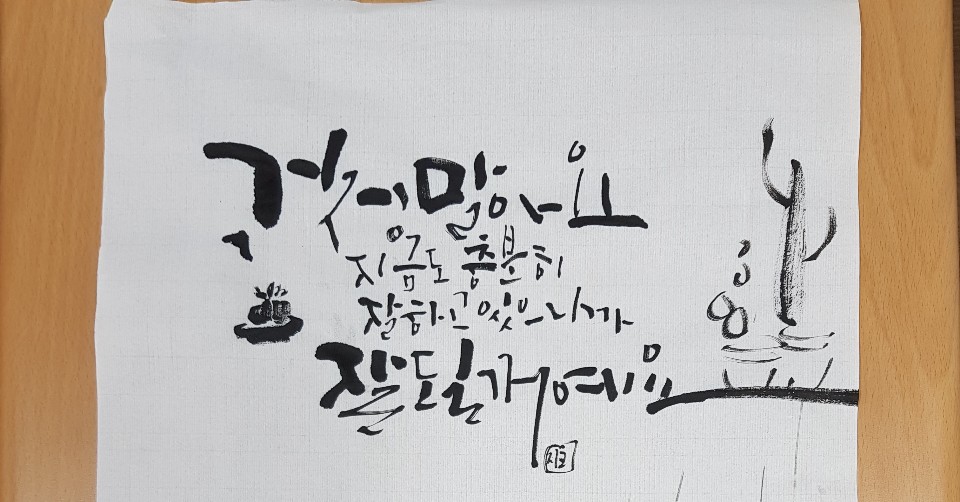 걱정말아요
지금도 충분히
잘하고 있으니까
잘 될거예요